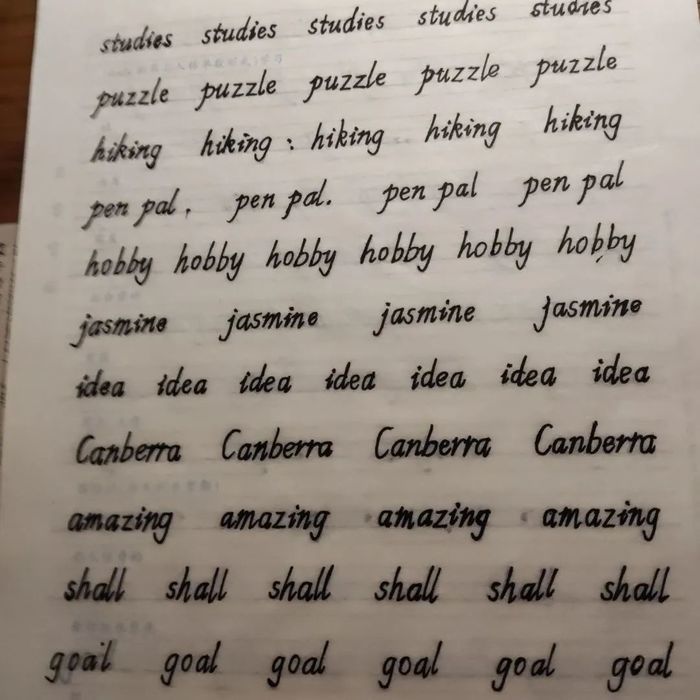 studies studies studies studies studies
puzzle puzzle puzzle puzzle puzzle
hiking hiking : hiking hiking hiking
pen pal . pen pal. pen pal pen pal
hobby hobby hobby hobby hobby hobby
jasmine jasmine jasmine jasmine
idea idea idea idea idea idea idea
Canberra Canberra Canberra Canberra
amazing amazing amazing amazing
shall shall shall shall shall shall
goal goal goal goal goal goal